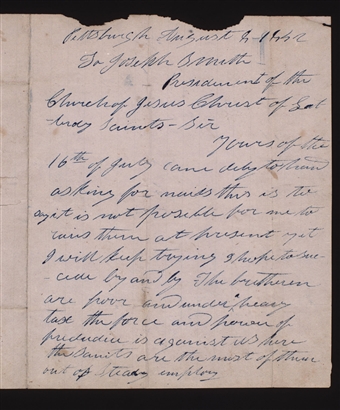 Pittsburgh August 2-1842
To Joseph Smith
Presedment of the
Church of Jesus Christ of Lat
-terdy Saints - Sir
Yours of the
16th of July came duly to hand
asking for this is to
say it is not posseble for me to
rais them at present yet
I will keep trying I hope to suc-
-cede by and by The brethren
are poor and under heavy
tax the force and power of
predudice is against us here
the Saints are the most of them
out of steady employ